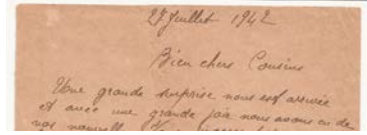 27 Juillet 1942
Bien chers Cousins
Une grande surprise nous est arrivée
et avec une grande joie nous avons eu de
vos nouvelles